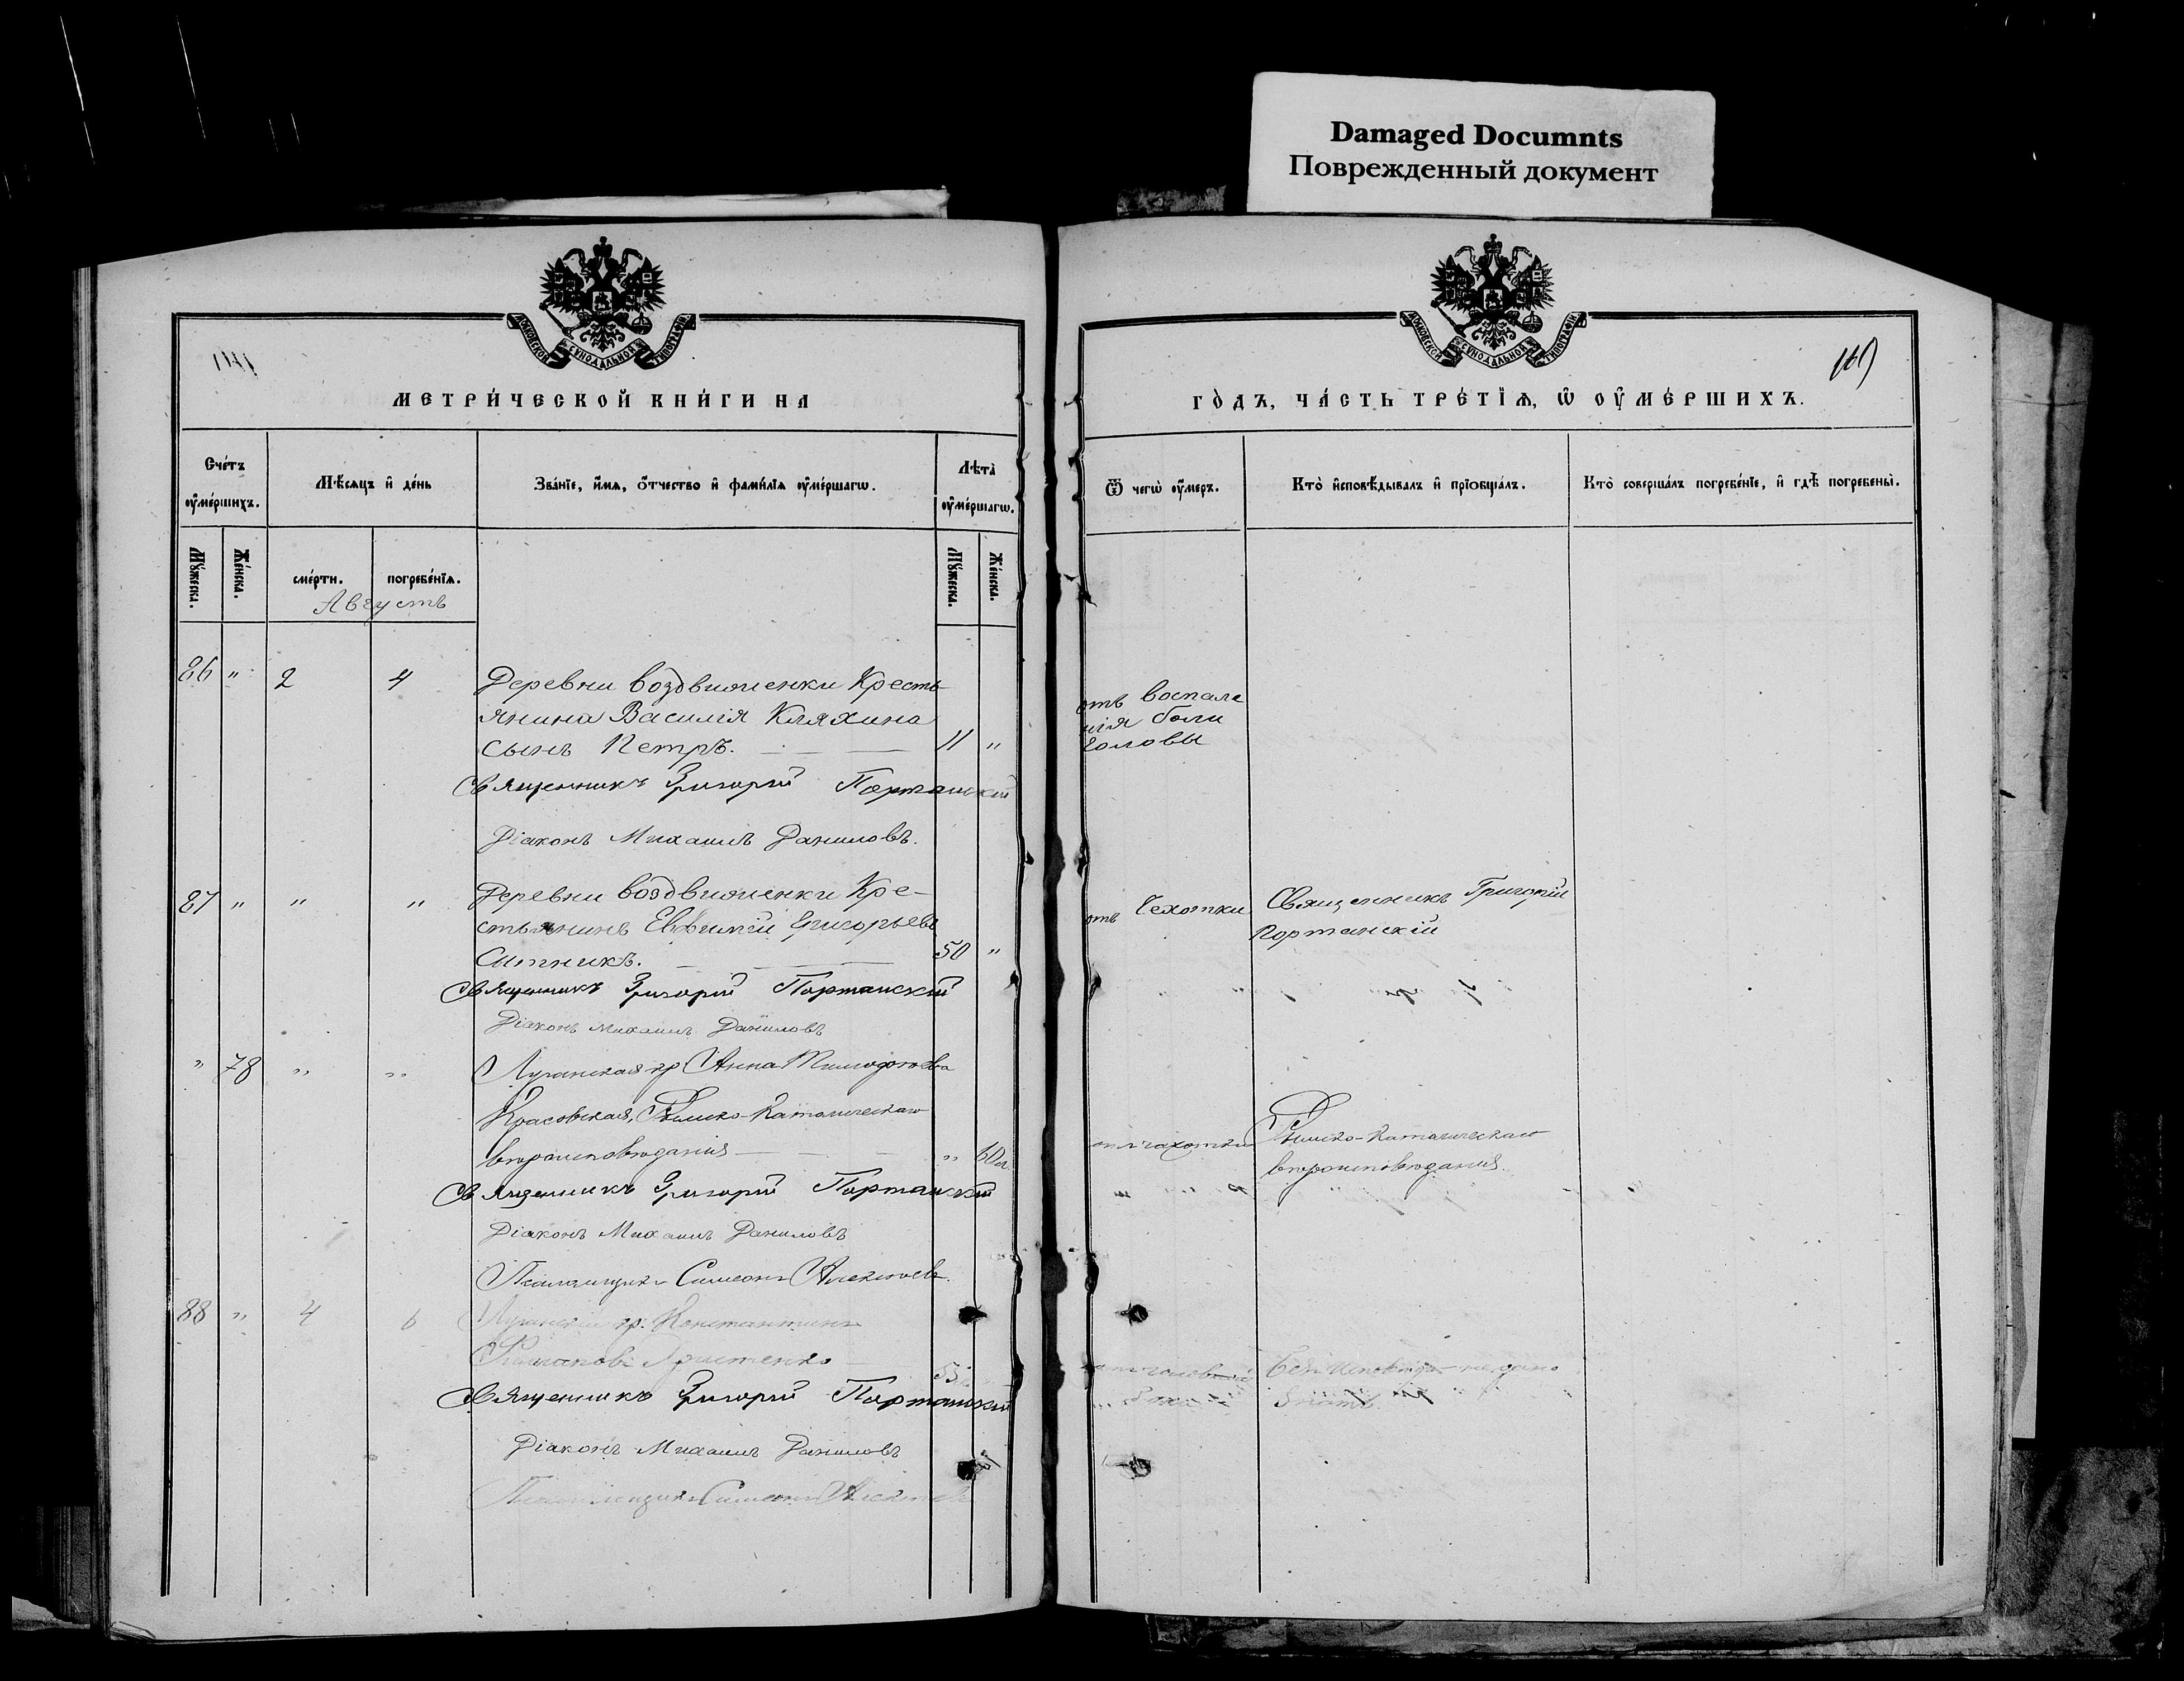 Damaged Documnts
Поврежденный документ
МОСКОВСКОЙ СѴНОДАЛЬНОЙ ТИПОГРАФІИ
МЕТРИ́ЧЕСКОЙ КНИ́ГИ НА
Сче́тъ ᲂу҆ме́ршихъ.
Мѣ́сяцъ и҆ де́нь
Зва́нїе, и҆́мѧ, ѻ҆́тчество и҆ фами́лїѧ ᲂу҆ме́ршагѡ.
Лѣта̀ ᲂу҆ме́ршагѡ.
Мꙋ́жеска.
Же́нска.
сме́рти.
погребе́нїѧ.
Мꙋ́жеска.
Же́нска.
Августъ
86 " 2 4 Деревни Воздвиженки Кресть-
янина Василія Кляхина
сынъ Петръ. 11 "
Священникъ Григорій Портанскій
Діаконъ Михаилъ Даниловъ.
87 " " " Деревни Воздвиженки Кре-
стьянинъ Евфимій Григорьевъ
Ситникъ. 50 "
Священникъ Григорій Портанскій
Діаконъ Михаилъ Даниловъ
" 78 " " Луганская гр Анна
Красовская, Римско-Католическаго
вѣроисповѣданія " 60 л.
Священникъ Григорій Портанскій
Діаконъ Михаилъ Даниловъ
Псаломщикъ Симеонъ Алексѣевъ.
88 " 4 6 Луганскій гр. Константинъ
55
Священникъ Григорій Портанскій
Діаконъ Михаилъ Даниловъ
Псаломщикъ Симеонъ Алексѣевъ
МОСКОВСКОЙ СѴНОДАЛЬНОЙ ТИПОГРАФІИ
ГО́ДЪ, ЧА́СТЬ ТРЕ́ТЇѦ, Ѡ҆ ОУ҆МЕ́РШИХЪ.
Ѿ чегѡ̀ ᲂу҆́меръ.
Кто̀ и҆сповѣ́дывалъ и҆ прїѡбща́лъ.
Кто̀ соверша́лъ погребе́нїе, и҆ гдѣ̀ погребены̀.
отъ воспале
нія боли
головы
отъ Чехотки Священникъ Григорій
Портанскій
отъ чахотки Римско-Католическаго
вѣроисповѣданія.